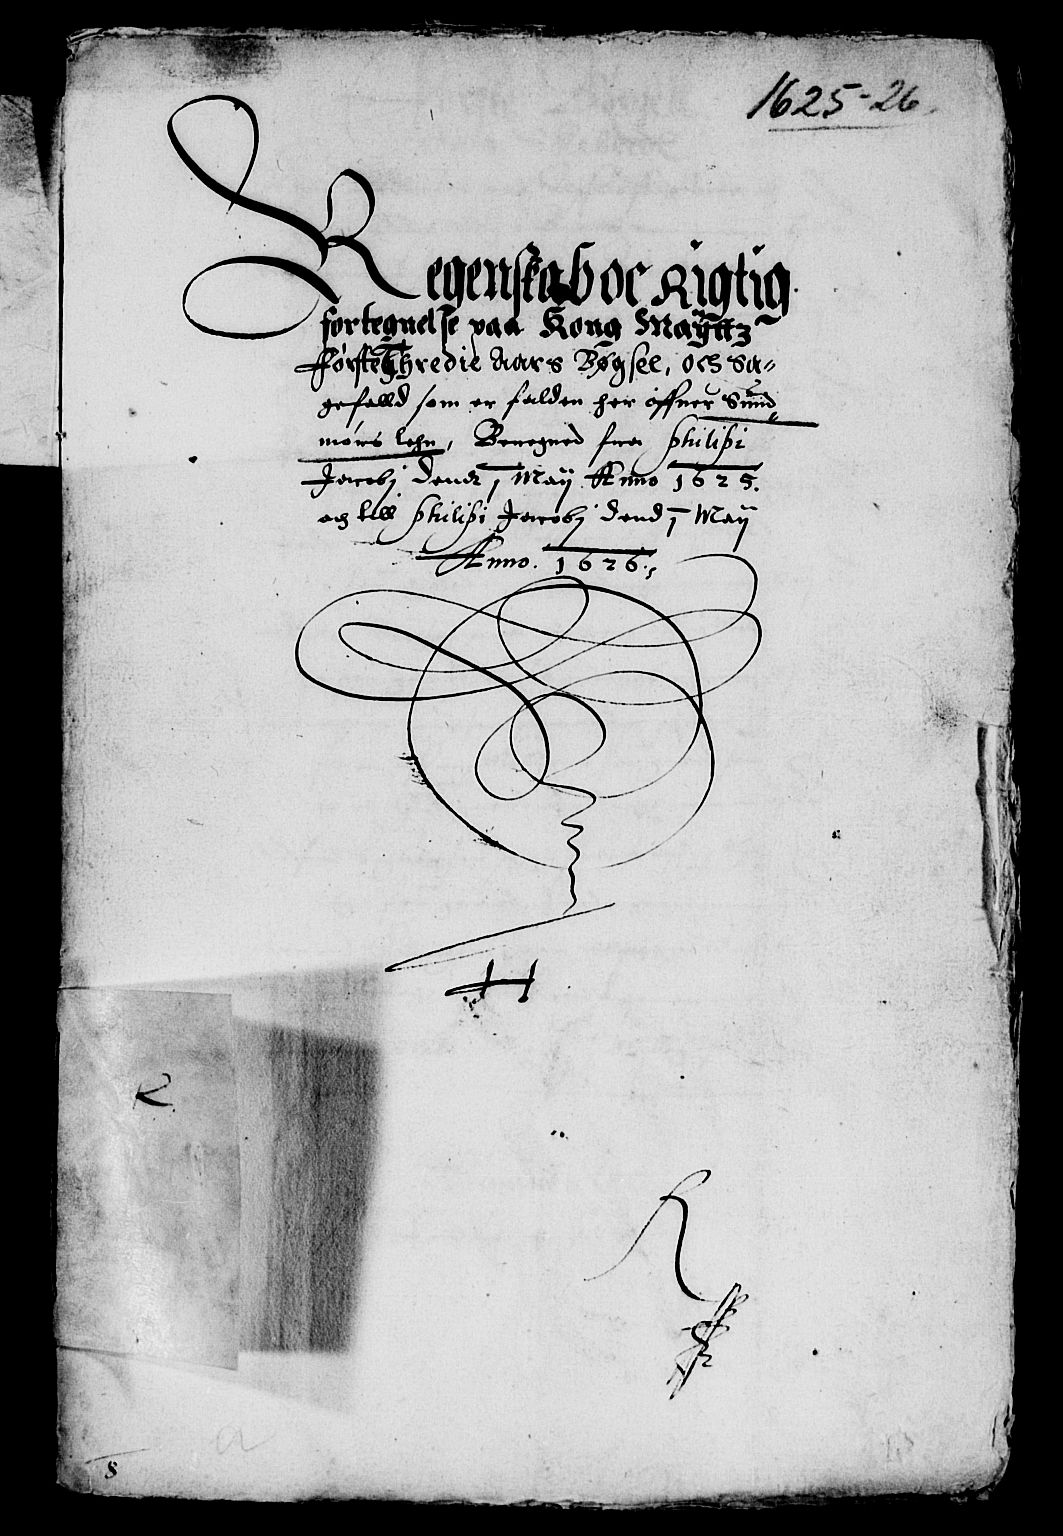 1625-26.
Regenskab oc Rigtig
fortegnelse paa Kong Mayttz
Første Thredie Aars Bøgsel, och Sa-
gefalld som er falden her offuer Sund
mørs lehn, Beregned fra philipi
Jacobj dend 1 Maij Anno 1625.
och till philipi Jacobj dend 1 Maij
Anno. 1626.
H
R
R
8